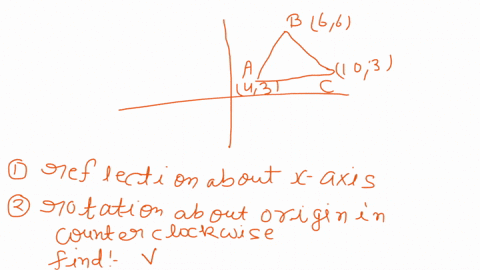 B (6,6)
A
(10,3)
(4,3)
C
① reflection about x-axis
② rotation about origin in
counterclockwise
find:- V